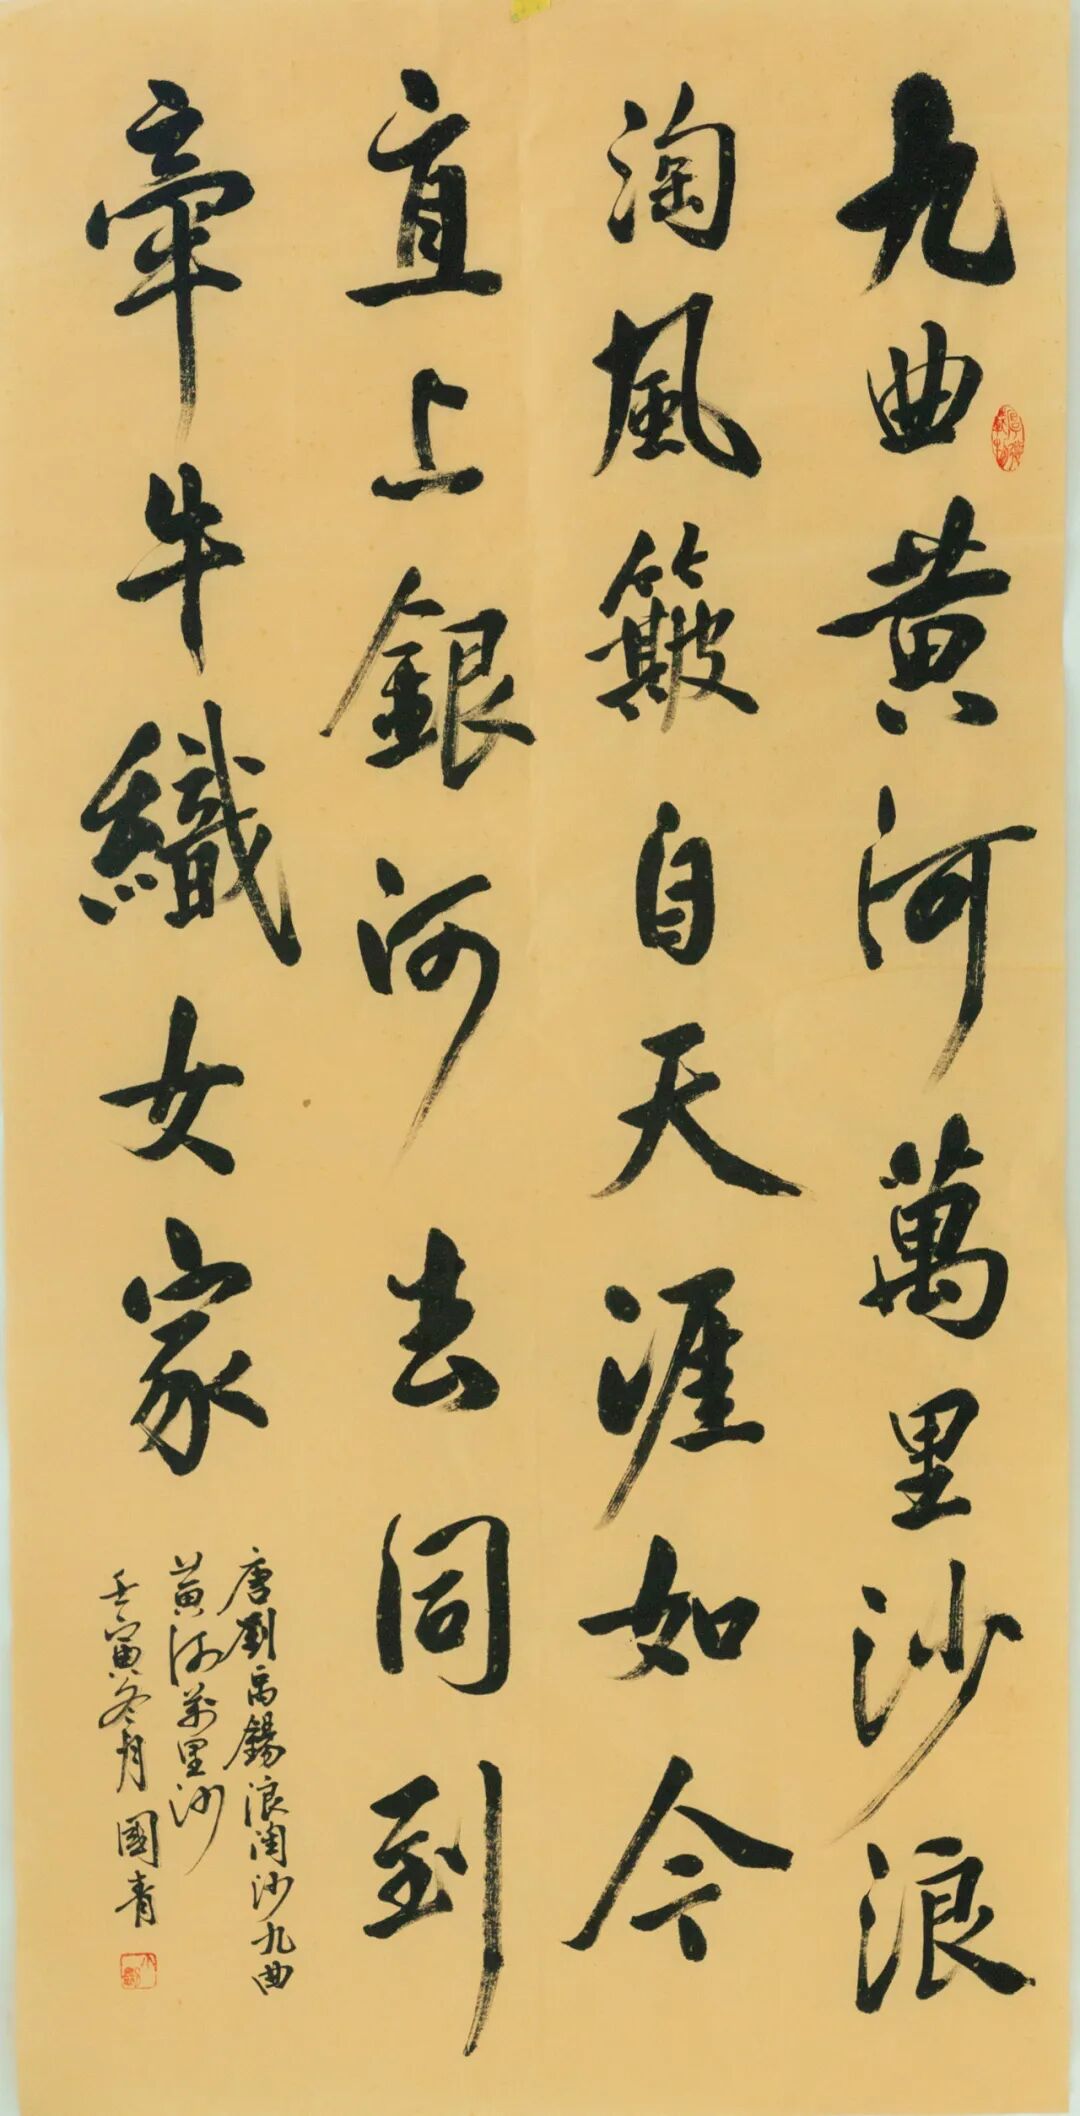 九曲黃河萬里沙浪
淘風簸自天涯如今
直上銀河去同到
牽牛織女家
唐劉禹錫浪淘沙九曲
黃河萬里沙
壬寅冬月國青